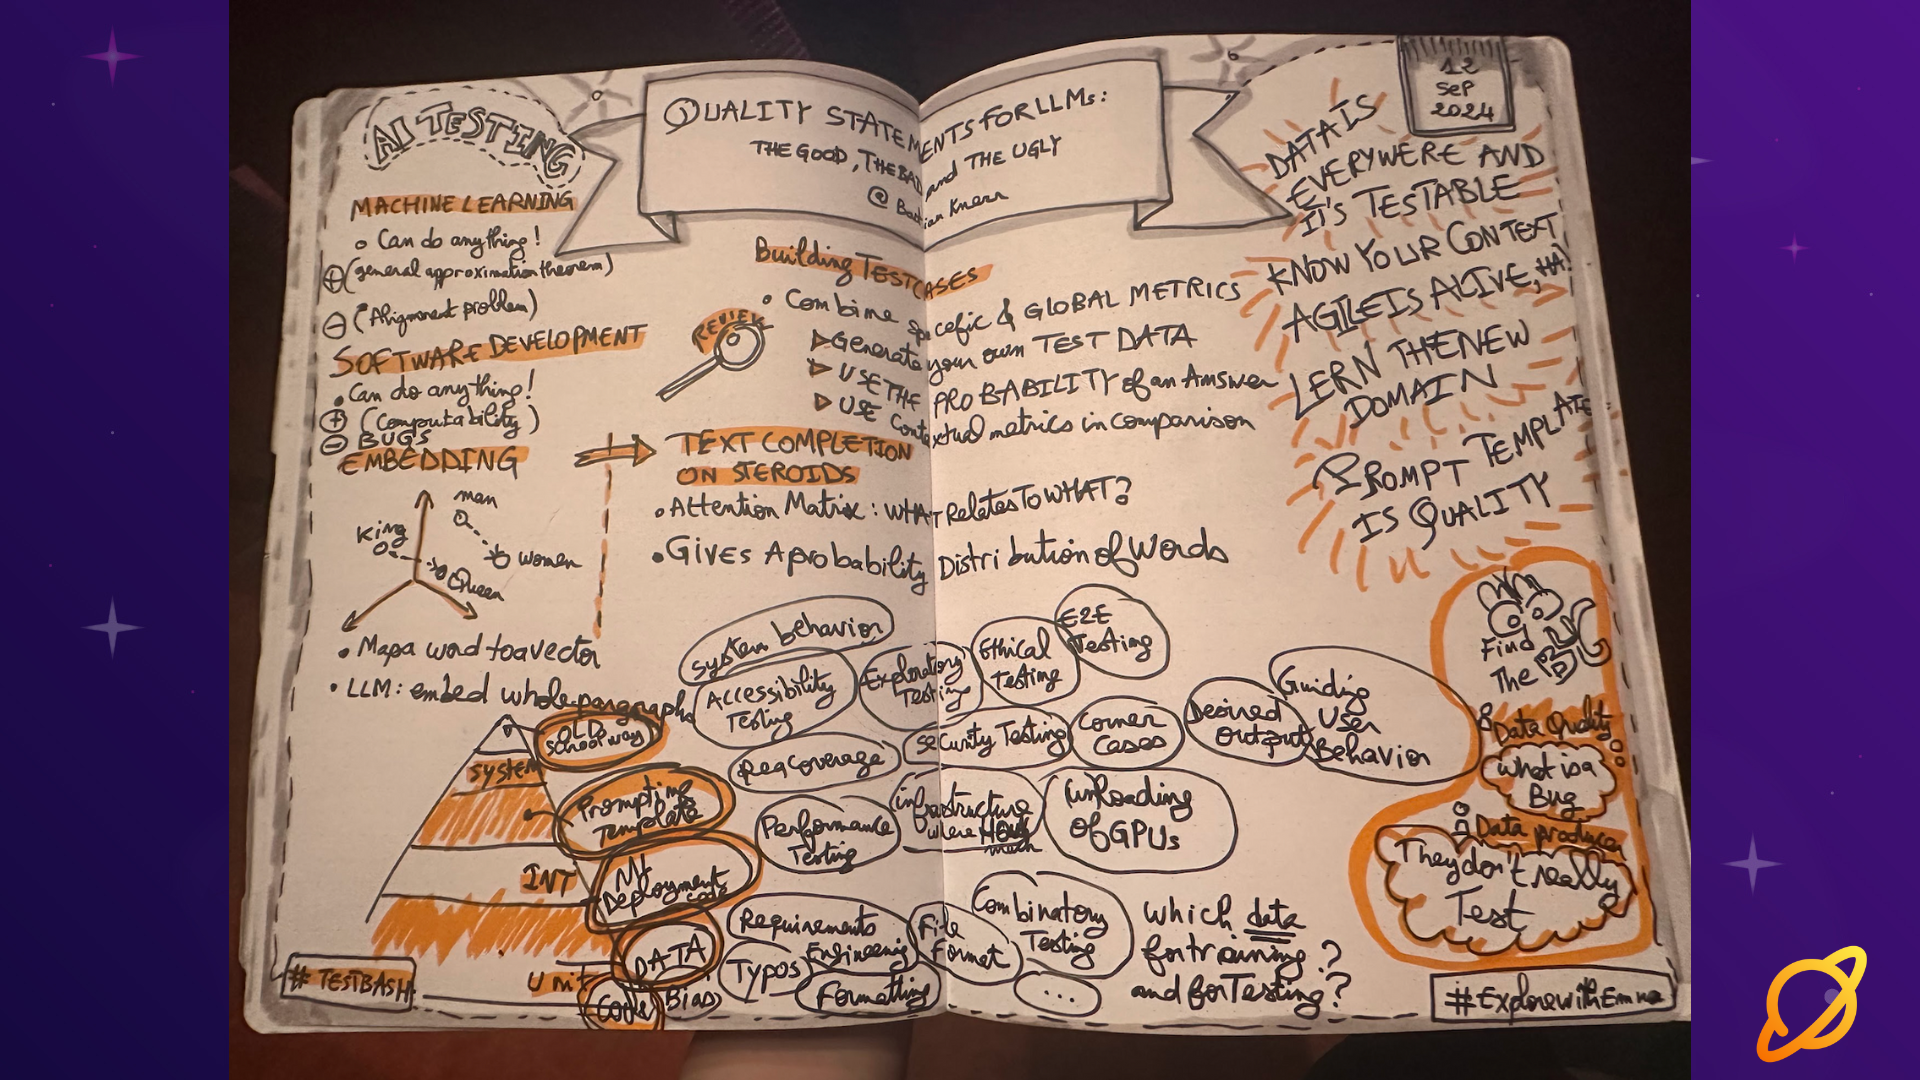 AI TESTING
QUALITY STATEMENTS FOR LLMs:
THE GOOD, THE BAD and THE UGLY
@ Bastian Knerr
12
SEP
2024
MACHINE LEARNING
Can do anything!
+ (general approximation theorem)
- (Alignment problem)
SOFTWARE DEVELOPMENT
Can do anything!
+ (Computability)
- BUGS
EMBEDDING
man
King
women
Queen
Map a word to a vector
LLM: embed whole paragraphs
Building TESTCASES
REVIEW
Combine specefic & GLOBAL METRICS
Generate your own TEST DATA
USE THE PROBABILITY of an Answer
USE Contextual metrics in comparison
TEXT COMPLETION
ON STEROIDS
Attention Matrix: WHAT Relates To WHAT?
Gives A probability Distribution of Words
DATA IS
EVERYWERE AND
IT'S TESTABLE
KNOW YOUR CONTEXT
AGILE IS ALIVE, HA!
LERN THE NEW
DOMAIN
PROMPT TEMPLATE
IS QUALITY
system behavior
Accessibility
Testing
Exploratory
Testing
Ethical
Testing
E2E
Testing
OLD
School way
Req Coverage
Security Testing
Corner
Cases
Desired
output
Guiding
User
Behavior
system
Prompting
Template
Performance
Testing
infrastructure
where HOW
much
(un)loading
of GPUs
INT
ML
Deployment
code
Requirements
Engineering
File
Format
Combinatory
Testing
Which data
for training?
and for Testing?
DATA
Typos
Formatting
...
Unit
Code
Bias
Find
The BUG
& Data Quality
What is a
Bug
Data producer
They don't really
Test
# TESTBASH
#ExploreWithEmna